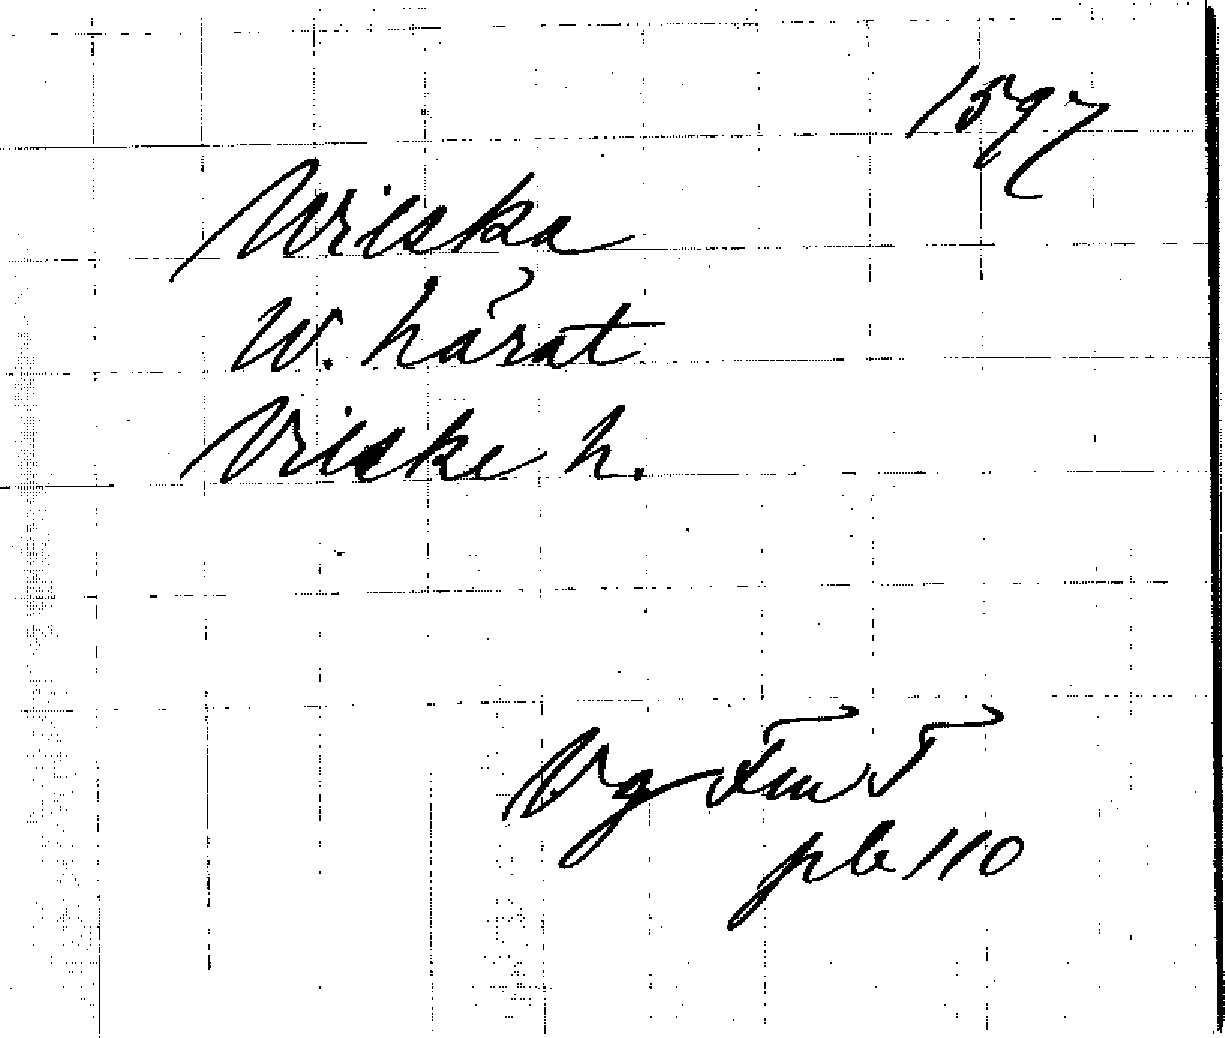 1597
Wiska
W. hårat
Viske h.
Vg Fmt
pb 110